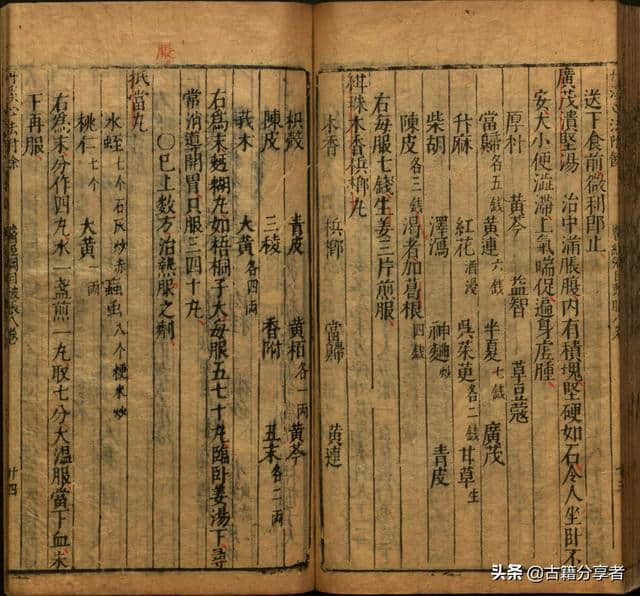 送下食前微利即止
廣茂潰堅湯　治中滿脹腹內有積塊堅硬如石令人坐臥不
安大小便澁滯上氣喘促遍身虛腫
厚朴　黃芩　益智　草豆蔻
當歸各五戔　黃連六戔　半夏七戔　廣茂
升麻　紅花酒浸　吳茱萸各二戔　甘草生
柴胡　澤瀉　神麯炒　青皮
陳皮各三戔　渴者加葛根四戔
右每服七錢生姜三片煎服
緝珠木香梹榔丸
木香　梹榔　當歸　黃連
枳殼　青皮　黃栢各一両　黃芩
陳皮　三稜　香附　丑末各二両
莪木　大黃各四両
右為末麪糊丸如梧桐子大每服五七十丸臨臥姜湯下尋
常消導開胃只服三四十丸
〇已上數方治熱脹之劑
脹
抵當丸
水蛭七个石灰炒赤　蝱虫八个粳米炒
桃仁七个　大黃一両
右為末分作四丸水一盞煎一丸取七分大溫服當下血未
下再服
廿四
头条 @古籍分享者